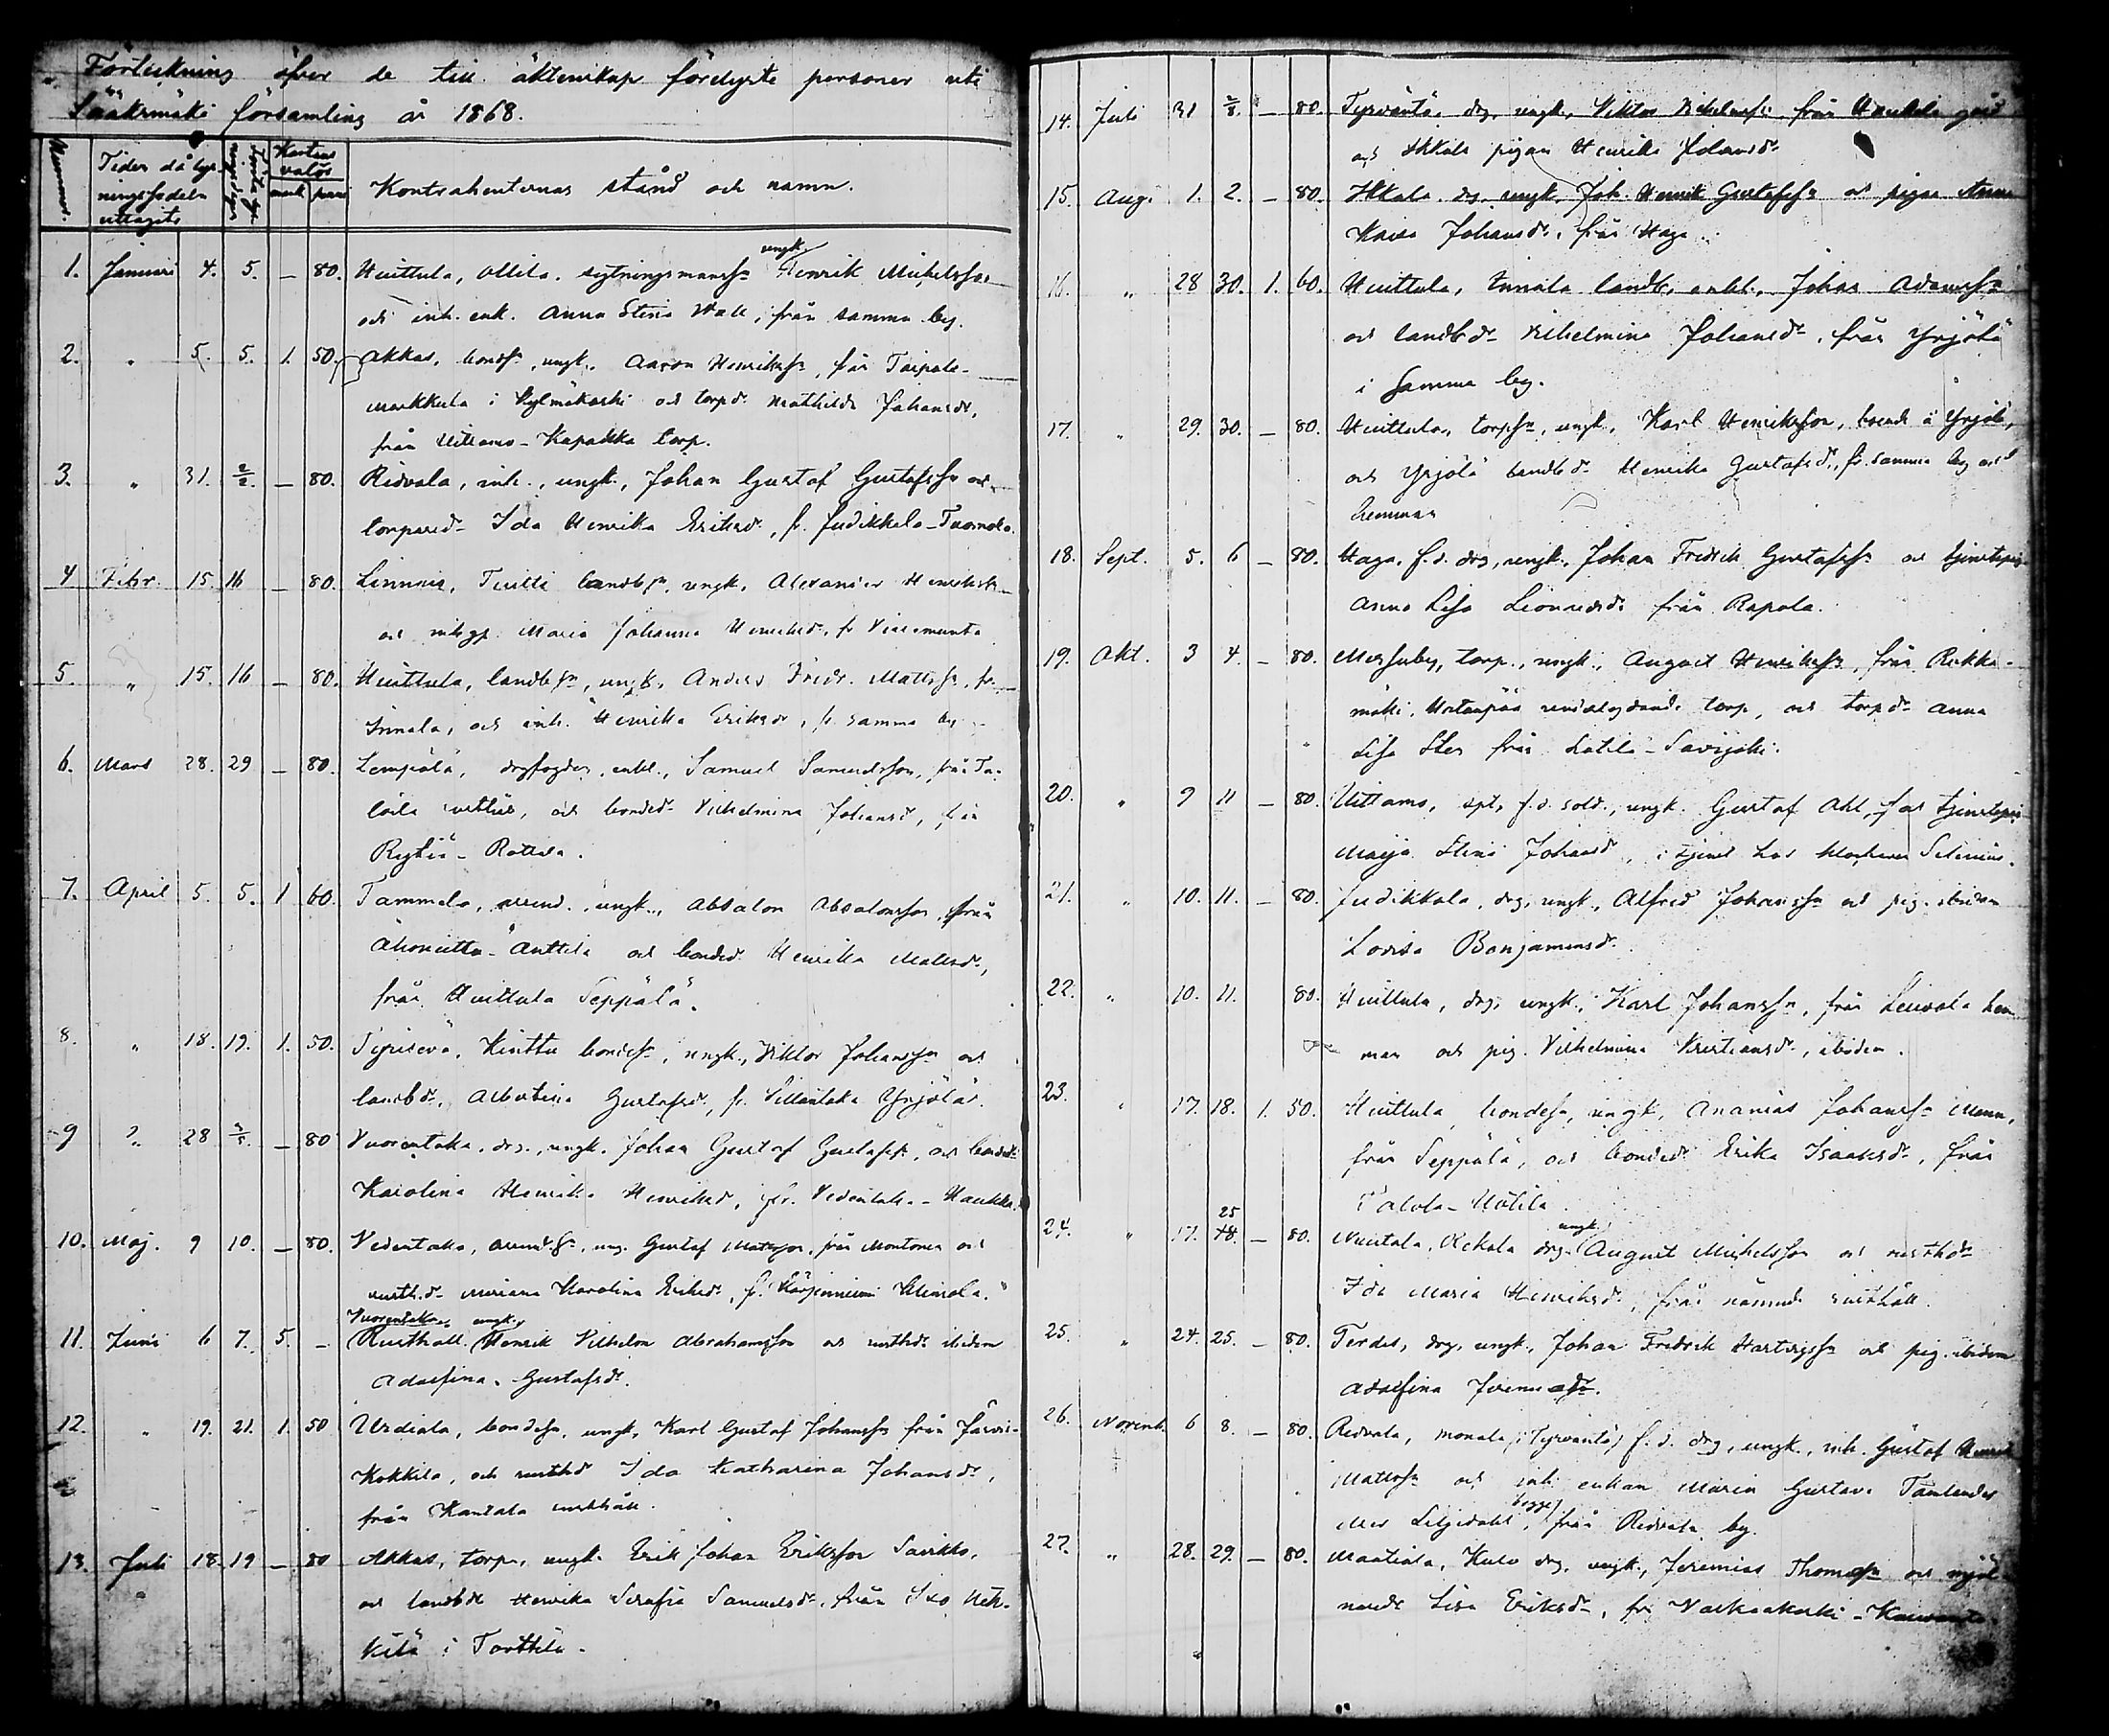 Förteckning öfver de till äktenskap förelyste personer uti
Sääksmäki församling år 1868.
Nummer. Tiden då lysningssedeln uttagits Kartans valör mark penni Kontrahenternas stånd och namn.
1. Januari 4. 5. — 80. Huittula, Ollila, sytningsmanssn ungk. Henrik Michelsson
och inh. enk. Anna Stina Wall, från samma by.
2. " 5. 5. 1. 50. Akkas, bondsn, ungk., Aaron Henrikssn, från Taipale-
Markkula i Kylmäkoski och torpd. Mathilda Johansdr,
från Uittamo-Kapakka torp.
3. " 31. 2/2. — 80. Ridvala, inh., ungk., Johan Gustaf Gustafssn och
torpared. Ida Henrika Eriksdr, fr. Judikkala-Tuomola.
4 Febr. 15. 16 — 80. Linnais, Tuitti landbsn, ungk. Alexander Henrikssn
och Maria Johanna Henriksdr, fr
5. " 15. 16 — 80. Huittula, landbsn, ungk. Anders Fredr. Mattssn, fr.
Innala, och inh. Henrika Eriksdr, fr. samma by
6. Mars 28. 29 — 80. Lempäälä, drgfogden, enkl., Samuel Samuelsson, från
och bonded. Vilhelmina Johansd, från
Rytiö-Rottila.
7. April 5. 5. 1 60. Tammela, arrend., ungk., Absalon Absalonsson, från
Anttila och bonded. Henrika Mattsdr,
från Huittula Seppälä.
8. " 18. 19. 1. 50. Kinttu bondesn, ungk., Viktor Johanssn och
landbdr. Albertina Gustafsdr, fr. Yrjölä.
9 " 28 3/5. — 80 Vuorentaka, drg., ungk. Johan Gustaf Gustafssn, och bonded
Karolina Henrika Henriksd, fr. Vedentaka-Haukka.
10. Maj. 9 10. — 80. Vedentaka, arrendsn, ung. Gustaf Mattsson, från Montonen och
rusth.d. Mariana Karolina Eriksdr, fr.
11. Juni 6 7. 5. — Vuorentaka ungk. Rusthåll. Henrik Vilhelm Abrahamsson och rusthdr. ibidem
Adolfina Gustafsdr.
12. " 19. 21. 1. 50 Urdiala, bondesn, ungk, Karl Gustaf Johanssn från
Kokkila, och rusthd Ida Katharina Johansdr,
från Kantala rusthåll.
13. Juli 18. 19 — 80 Akkas, torp., ungk. Erik Johan Eriksson
och landbdr Henrika Serafia Samuelsdr, från Iso
i Torttila.
14. Juli 31 2/8. — 80. Tyrväntö, drg, ungk., Viktor från Haukila gård
och Ikkala pigan Henrika
15. Aug. 1. 2. — 80. Ikkala, drg. ungk, Joh. Henrik Gustafssn och pigan Anna
Kaisa Johansdr, från Haga.
16. " 28 30. 1. 60. Huittula, Innala landb, enkl., Johan Adamssn
och landbdr Vilhelmina Johansdr, från Yrjölä
i samma by.
17. " 29. 30. — 80. Huittula, torpsn, ungk, Karl Henriksson, boende å Yrjölä,
och Yrjölä landbdr Henrika Gustafsdr, fr. samma by och
hemman
18. Sept. 5. 6 — 80. Haga, f.d. drg, ungk. Johan Fredrik Gustafssn och tjenstepig.
Anna Lisa från Rapola.
19. Okt. 3 4. — 80. torp., ungk., August Henrikssn, från
torp, och torpdr Anna
Lisa från
20. " 9 11 — 80. Uittamo, spt, f.d. sold., ungk. Gustaf Ahl, och tjenstepig
Maija Stina Johansd, i tjenst hos klockaren
21. " 10. 11. — 80. Judikkala, drg, ungk., Alfred Johanssn och pig. ibidem
Lovisa Benjaminsdr.
22. " 10. 11. 80. Huittula, drg, ungk., Karl Johanssn, från hem-
man och pig. Vilhelmina Kristiansdr, ibidem.
23. " 17. 18. 1. 50. Huittula bondesn, ungk, Ananias Johanssn
från Seppälä, och bonded Erika Isaksdr, från
24. " 17. 25 18. — 80. drg. ungk. August Michelsson och rusthdr
Ida Maria Henriksdr, från nämnde rusthåll.
25. " 24. 25. — 80. drg, ungk., Johan Fredrik och pig. ibidem
Adolfina
26. Novemb. 6 8. — 80. Ridvala, (i Tyrväntö) f.d. drg, ungk., inh. Gustaf Henrik
Mattssn och inh. enkan Maria Gustava
begge från Ridvala by.
27. " 28. 29. — 80. Maatiala, drg, ungk., Jeremias Thomassn och mjöl-
nared. Lisa Eriksdr, fr Valkeakoski